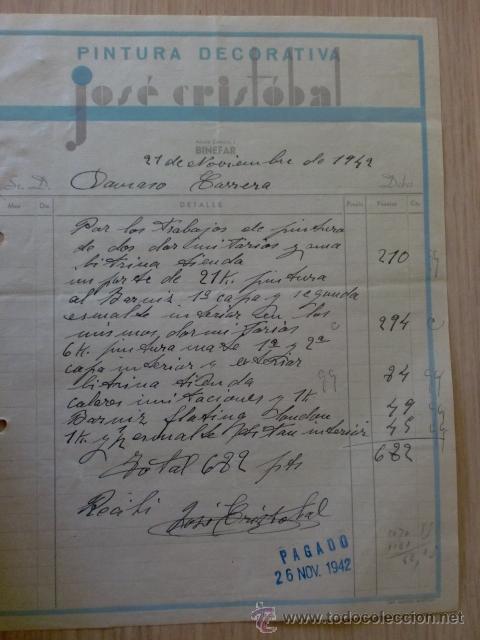 PINTURA DECORATIVA
José Cristóbal
BINEFAR
21 de Noviembre de 1942
Sr. D. Damaso Carrera Debe
Mes Día DETALLE Precio Pesetas Cts.
Por los trabajos de pintura
de dos dormitorios y una
bitrina tienda 210
importe de 21 K. pintura
al Barniz 1ª capa y segunda
esmalte interior en los
mismos dormitorios 294
6 K. pintura mate 1ª y 2ª
capa interior y exterior
bitrina tienda 84
colores imitaciones y 1 K.
Barniz flating 49
1 K. y ½ esmalte interior 45
682
Total 682 pts
Recibí José Cristobal
PAGADO
26 NOV. 1942
todocoleccion
www.todocoleccion.net